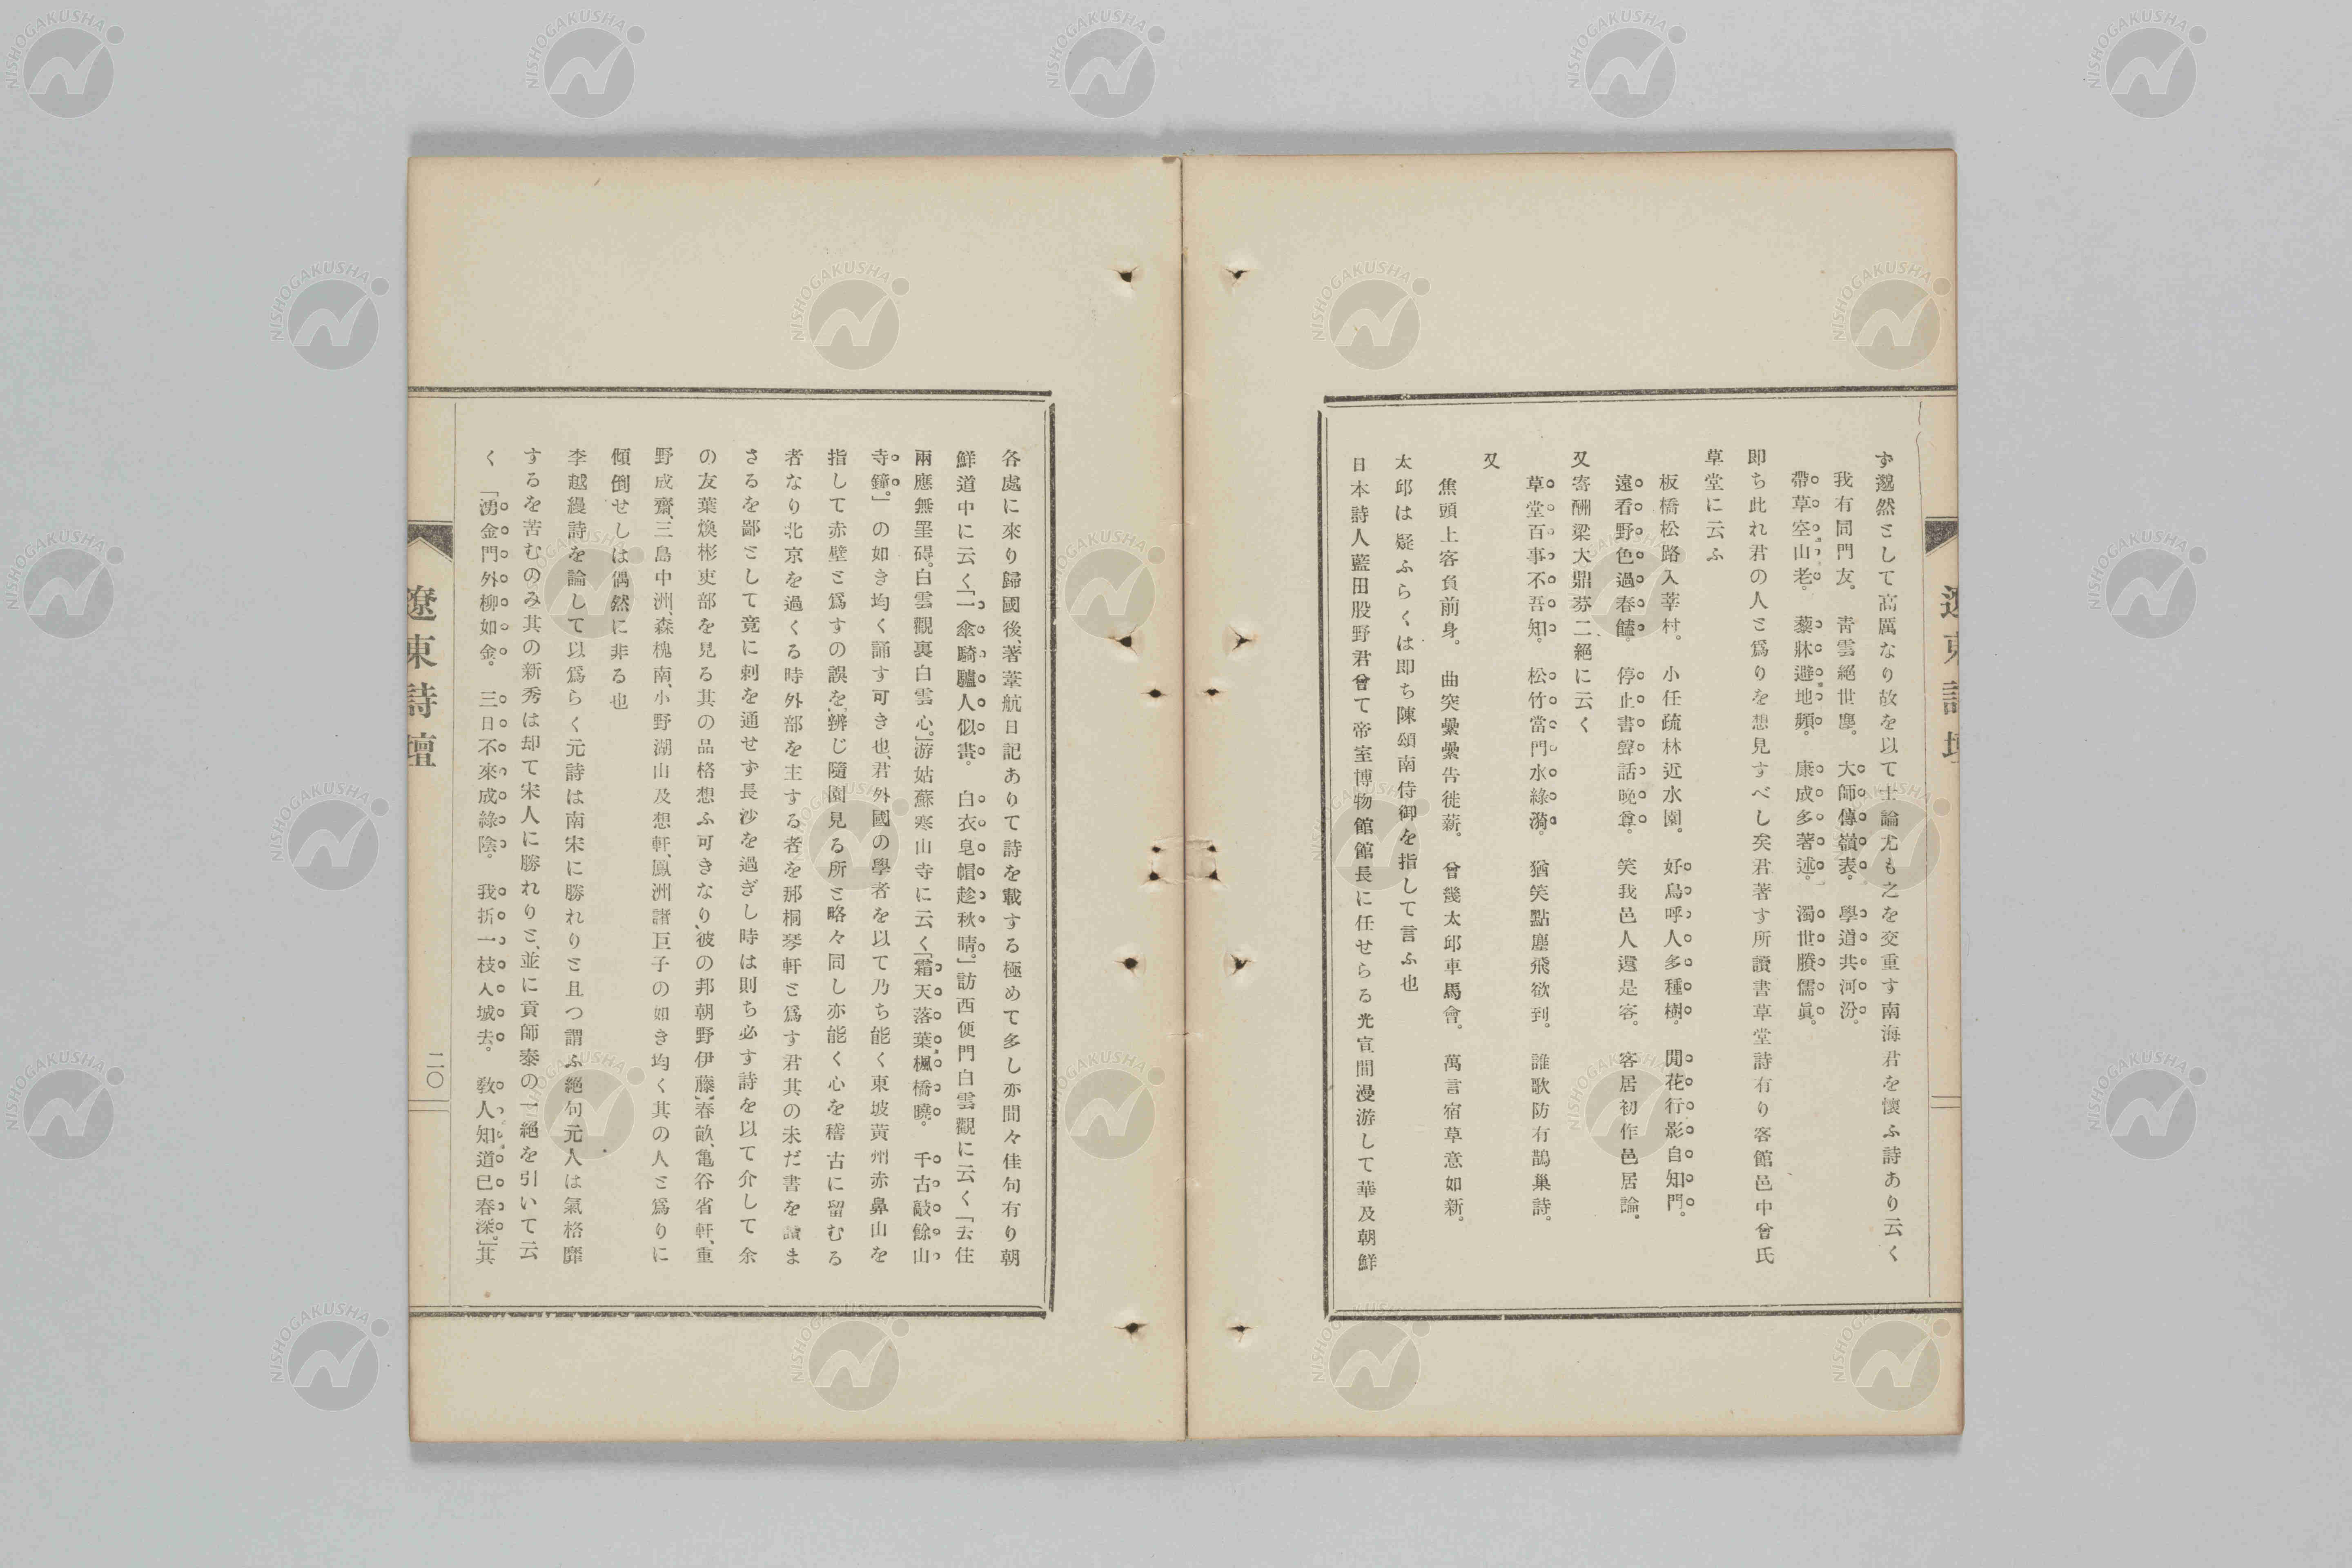 ず邈然として高厲なり故を以て士論尤も之を交重す南海君を懷ふ詩あり云く
我有同門友。靑雲絕世塵。大師傳嶺表。學道共河汾。
帶草空山老。藜牀避地頻。康成多著述。濁世賸儒眞。
即ち此れ君の人と爲りを想見すべし矣君著す所讀書草堂詩有り客館邑中曾氏
草堂に云ふ
板橋松路入莘村。小任疏林近水園。好鳥呼人多種樹。閒花行影自知門。
遠看野色過春饁。停止書聲話晚尊。笑我邑人還是客。客居初作邑居論。
又寄酬梁大鼎芬二絕に云く
草堂百事不吾知。松竹當門水綠漪。猶笑點塵飛欲到。誰歌防有鵲巢詩。
又
焦頭上客負前身。曲突纍纍告徙薪。曾幾太邱車馬會。萬言宿草意如新。
太邱は疑ふらくは即ち陳頌南侍御を指して言ふ也
日本詩人藍田股野君曾て帝室博物館館長に任せらる光宣間漫游して華及朝鮮
遼東詩壇
各處に來り歸國後、著葦航日記ありて詩を載する極めて多し亦間々佳句有り朝
鮮道中に云く「一傘騎驢人似畫。白衣皂帽趁秋晴。」訪西便門白雲觀に云く「去住
兩應無罣碍。白雲觀裏白雲心。」游姑蘇寒山寺に云く「霜天落葉楓橋曉。千古敲餘山
寺鐘。」の如き均く誦す可き也、君外國の學者を以て乃ち能く東坡黃州赤鼻山を
指して赤壁と爲すの誤を、辨じ隨園見る所と略々同し亦能く心を稽古に留むる
者なり北京を過くる時外部を主する者を那桐琴軒と爲す君其の未だ書を讀ま
さるを鄙として竟に刺を通せず長沙を過ぎし時は則ち必す詩を以て介して余
の友葉煥彬吏部を見る其の品格想ふ可きなり、彼の邦朝野伊藤春畝、亀谷省軒、重
野成齋、三島中洲、森槐南、小野湖山及想軒、鳳洲諸巨子の如き均く其の人と爲りに
傾倒せしは偶然に非る也
李越縵詩を論して以爲らく元詩は南宋に勝れりと且つ謂ふ絕句元人は氣格靡
するを苦むのみ其の新秀は却て宋人に勝れりと、並に貢師泰の一絕を引いて云
く「湧金門外柳如金。三日不來成綠陰。我折一枝入城去。敎人知道已春深。」其
遼東詩壇
二〇